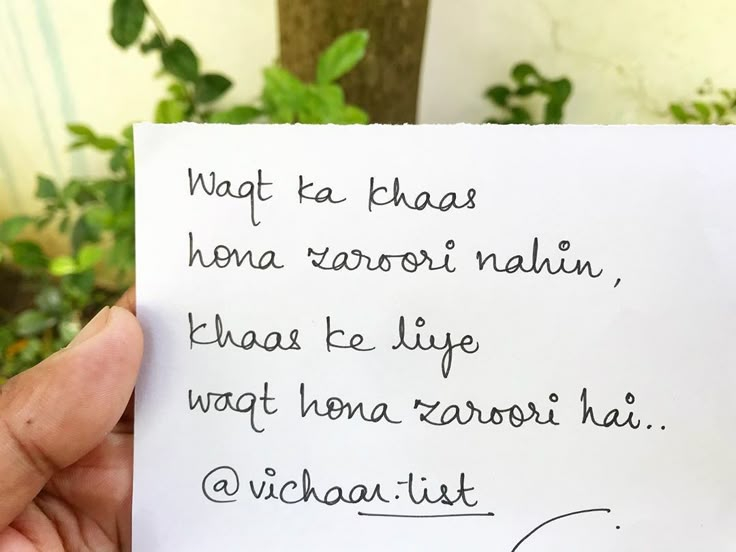 Waqt ka khaas
hona zaroori nahin,
khaas ke liye
waqt hona zaroori hai..
@vichaar.tist